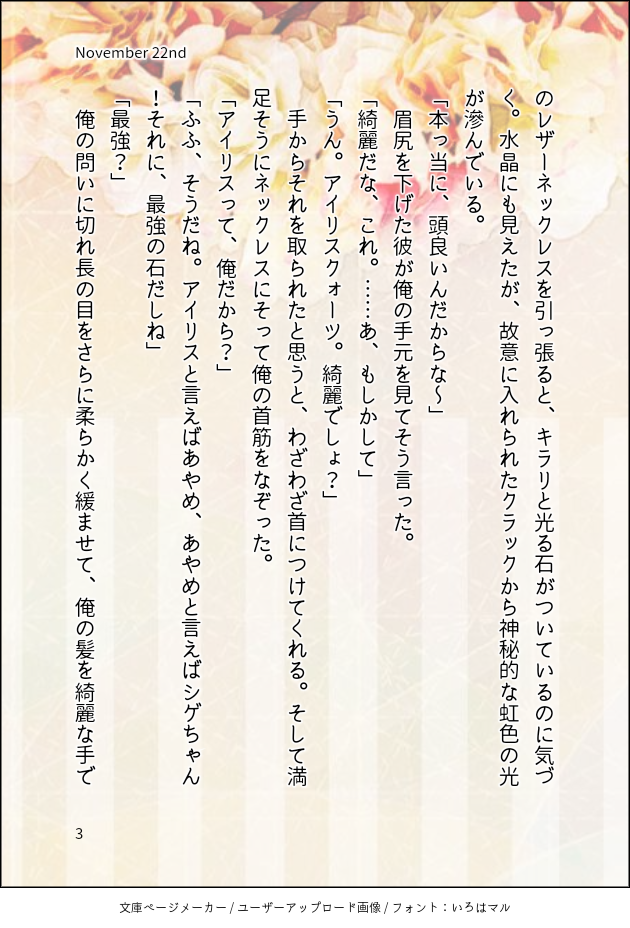 November 22nd
のレザーネックレスを引っ張ると、キラリと光る石がついているのに気づ
く。水晶にも見えたが、故意に入れられたクラックから神秘的な虹色の光
が滲んでいる。
「本っ当に、頭良いんだからな～」
眉尻を下げた彼が俺の手元を見てそう言った。
「綺麗だな、これ。……あ、もしかして」
「うん。アイリスクォーツ。綺麗でしょ？」
手からそれを取られたと思うと、わざわざ首につけてくれる。そして満
足そうにネックレスにそって俺の首筋をなぞった。
「アイリスって、俺だから？」
「ふふ、そうだね。アイリスと言えばあやめ、あやめと言えばシゲちゃん
！それに、最強の石だしね」
「最強？」
俺の問いに切れ長の目をさらに柔らかく緩ませて、俺の髪を綺麗な手で
3
文庫ページメーカー / ユーザーアップロード画像 / フォント：いろはマル